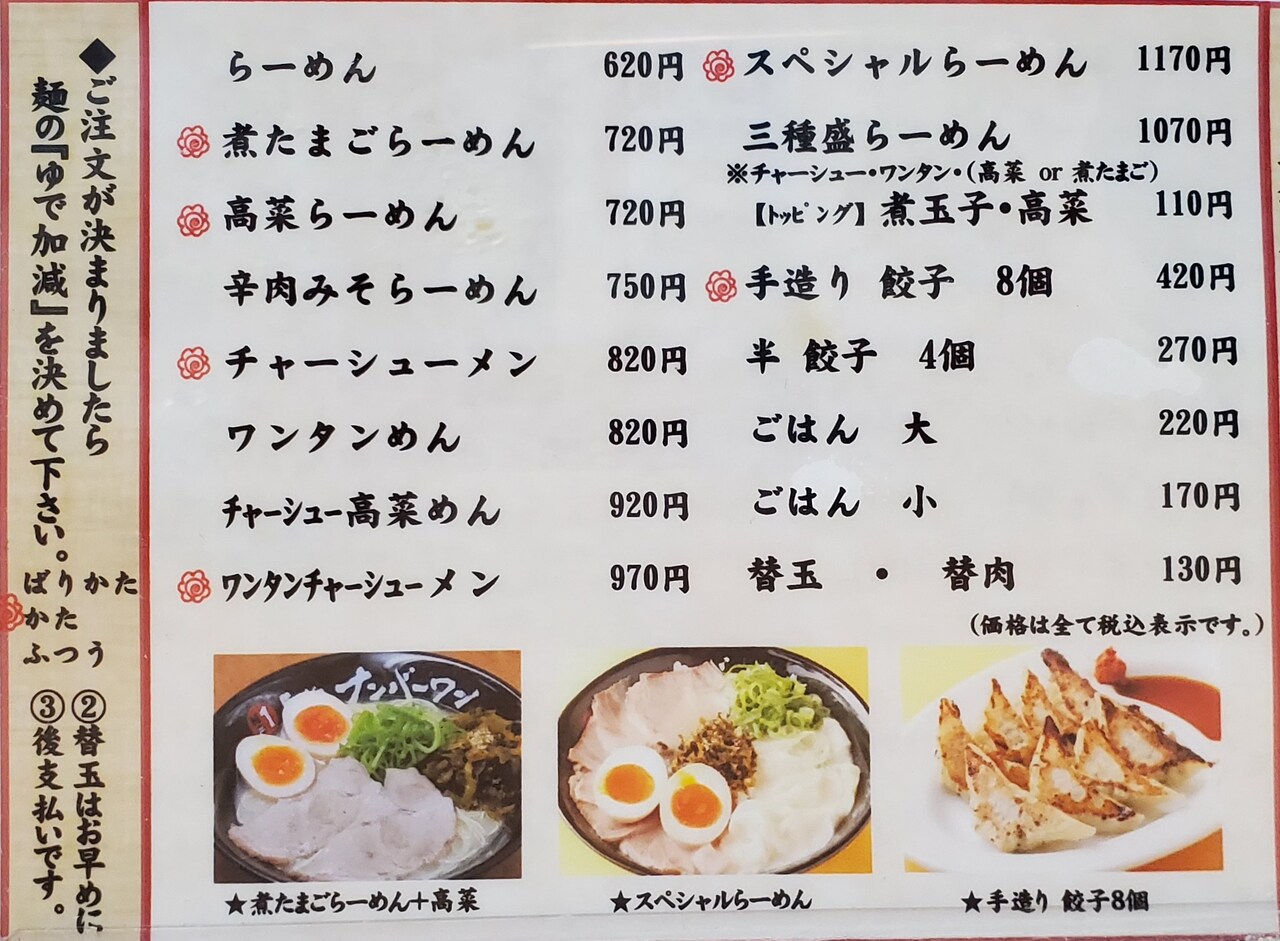 ◆ご注文が決まりましたら
麺の『ゆで加減』を決めて下さい。
ばりかた
かた
ふつう
②替玉はお早めに
③後支払いです。
らーめん 620円
煮たまごらーめん 720円
高菜らーめん 720円
辛肉みそらーめん 750円
チャーシューメン 820円
ワンタンめん 820円
チャーシュー高菜めん 920円
ワンタンチャーシューメン 970円
スペシャルらーめん 1170円
三種盛らーめん 1070円
※チャーシュー・ワンタン・(高菜 or 煮たまご)
【トッピング】煮玉子・高菜 110円
手造り 餃子 8個 420円
半 餃子 4個 270円
ごはん 大 220円
ごはん 小 170円
替玉 ・ 替肉 130円
(価格は全て税込表示です。)
ナンバーワン
★煮たまごらーめん+高菜
★スペシャルらーめん
★手造り 餃子8個